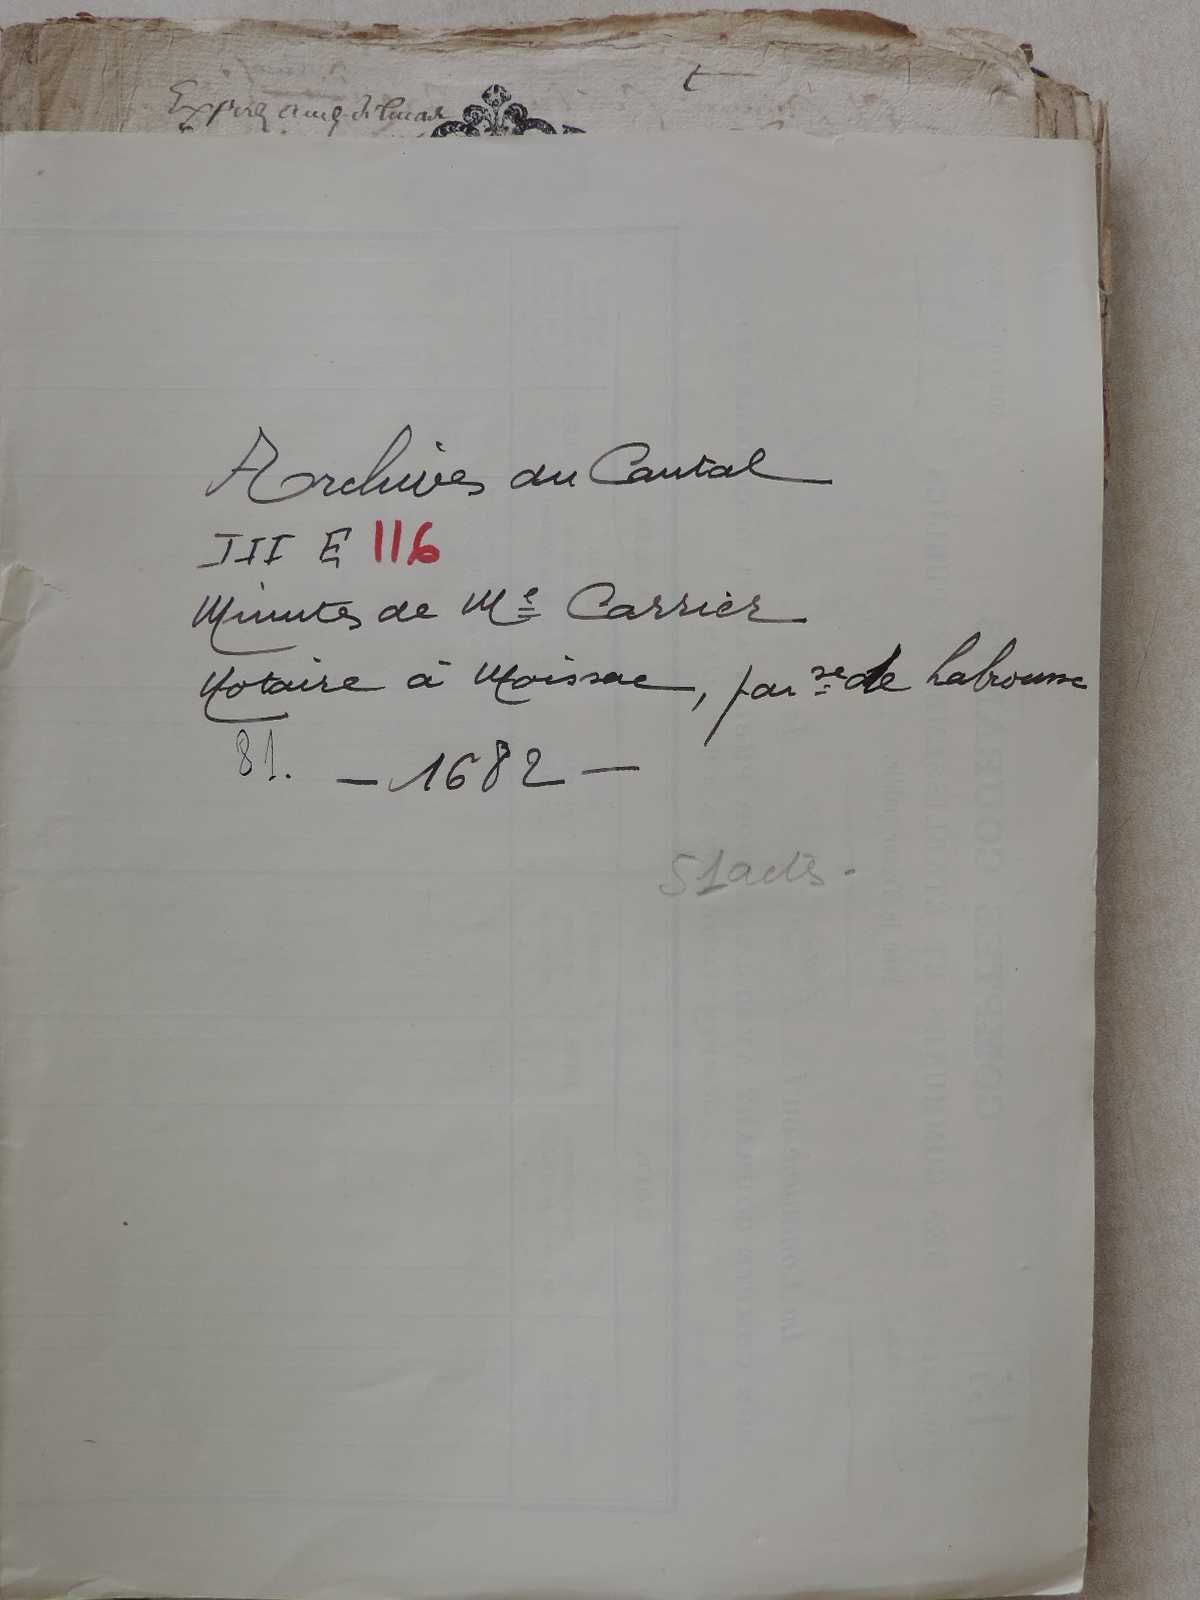 Archives du Cantal
III E 116
Minutes de Me Carrier
Notaire à Moissac, parsse de Labrousse
81. — 1682 —
51 actes.